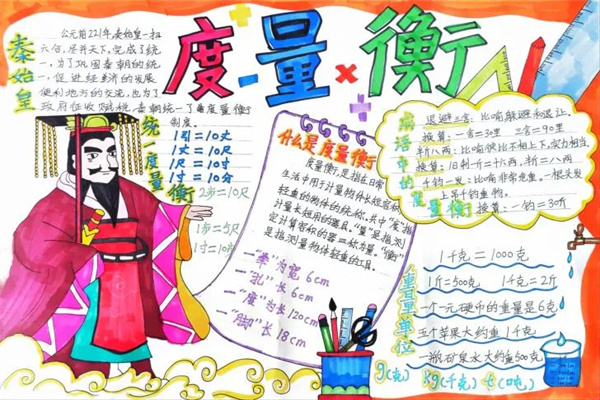 度量衡
秦始皇
公元前221年,秦始皇一扫
六合,尽并天下,完成了统
一,为了巩固秦朝的统
一,促进经济的发展
便利地方的交流,也为了
政府征收赋税,秦朝统一了度量衡
制度。
统一度量衡
1引=10丈
1丈=10尺
1尺=10寸
1寸=10分
2步=10尺
1步=5尺
1寸=10分
什么是度量衡
度量衡,是指在日常
生活中用于计量物体长短容积
轻重的物体的统称。其中“度”指
计量长短用的器具。“量”是指测
定计算容积的器皿称为量。“衡”
是指测量物体轻重的工具。
一“柰”为宽6cm
一“孔”长6cm
一“度”为长120cm
一“脚”长18cm
成语中的度量衡
退避三舍:比喻躲避和退让。
换算:一舍=30里 三舍=90里
半斤八两:比喻彼此不相上下,实力相当。
换算:旧制1斤=十六两,半斤=八两
千钧一发:比喻非常危重。一根头发
上吊千钧重物。
换算:一钧=30斤
重量单位
1千克=1000克
1斤=500克 1千克=2斤
一个一元硬币的重量是6克
五个苹果大约重1千克
一瓶矿泉水大约重500克
g(克) kg(千克) t(吨)